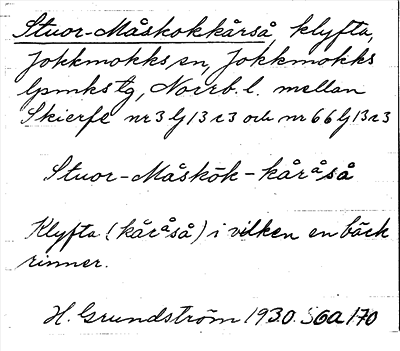 Stuor-Måskokkårså klyfta,
Jokkmokks sn, Jokkmokks
lpmkstg, Norrb. l. mellan
Skierfe nr 3 lj 13 c 3 och nr 66 lj 13 c 3
Stuor-Måskōk-kåråså
Klyfta (kåråså) i vilken en bäck
rinner.
H. Grundström 1930. S6a 170